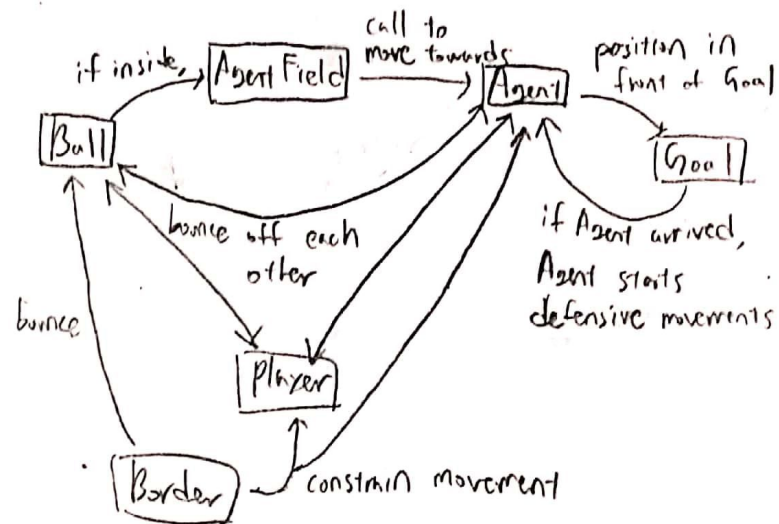 call to
move towards
if inside,
Agent Field
Agent
position in
front of Goal
Ball
Goal
bounce off each
other
if Agent arrived,
Agent starts
defensive movements
bounce
Player
Border
constrain movement